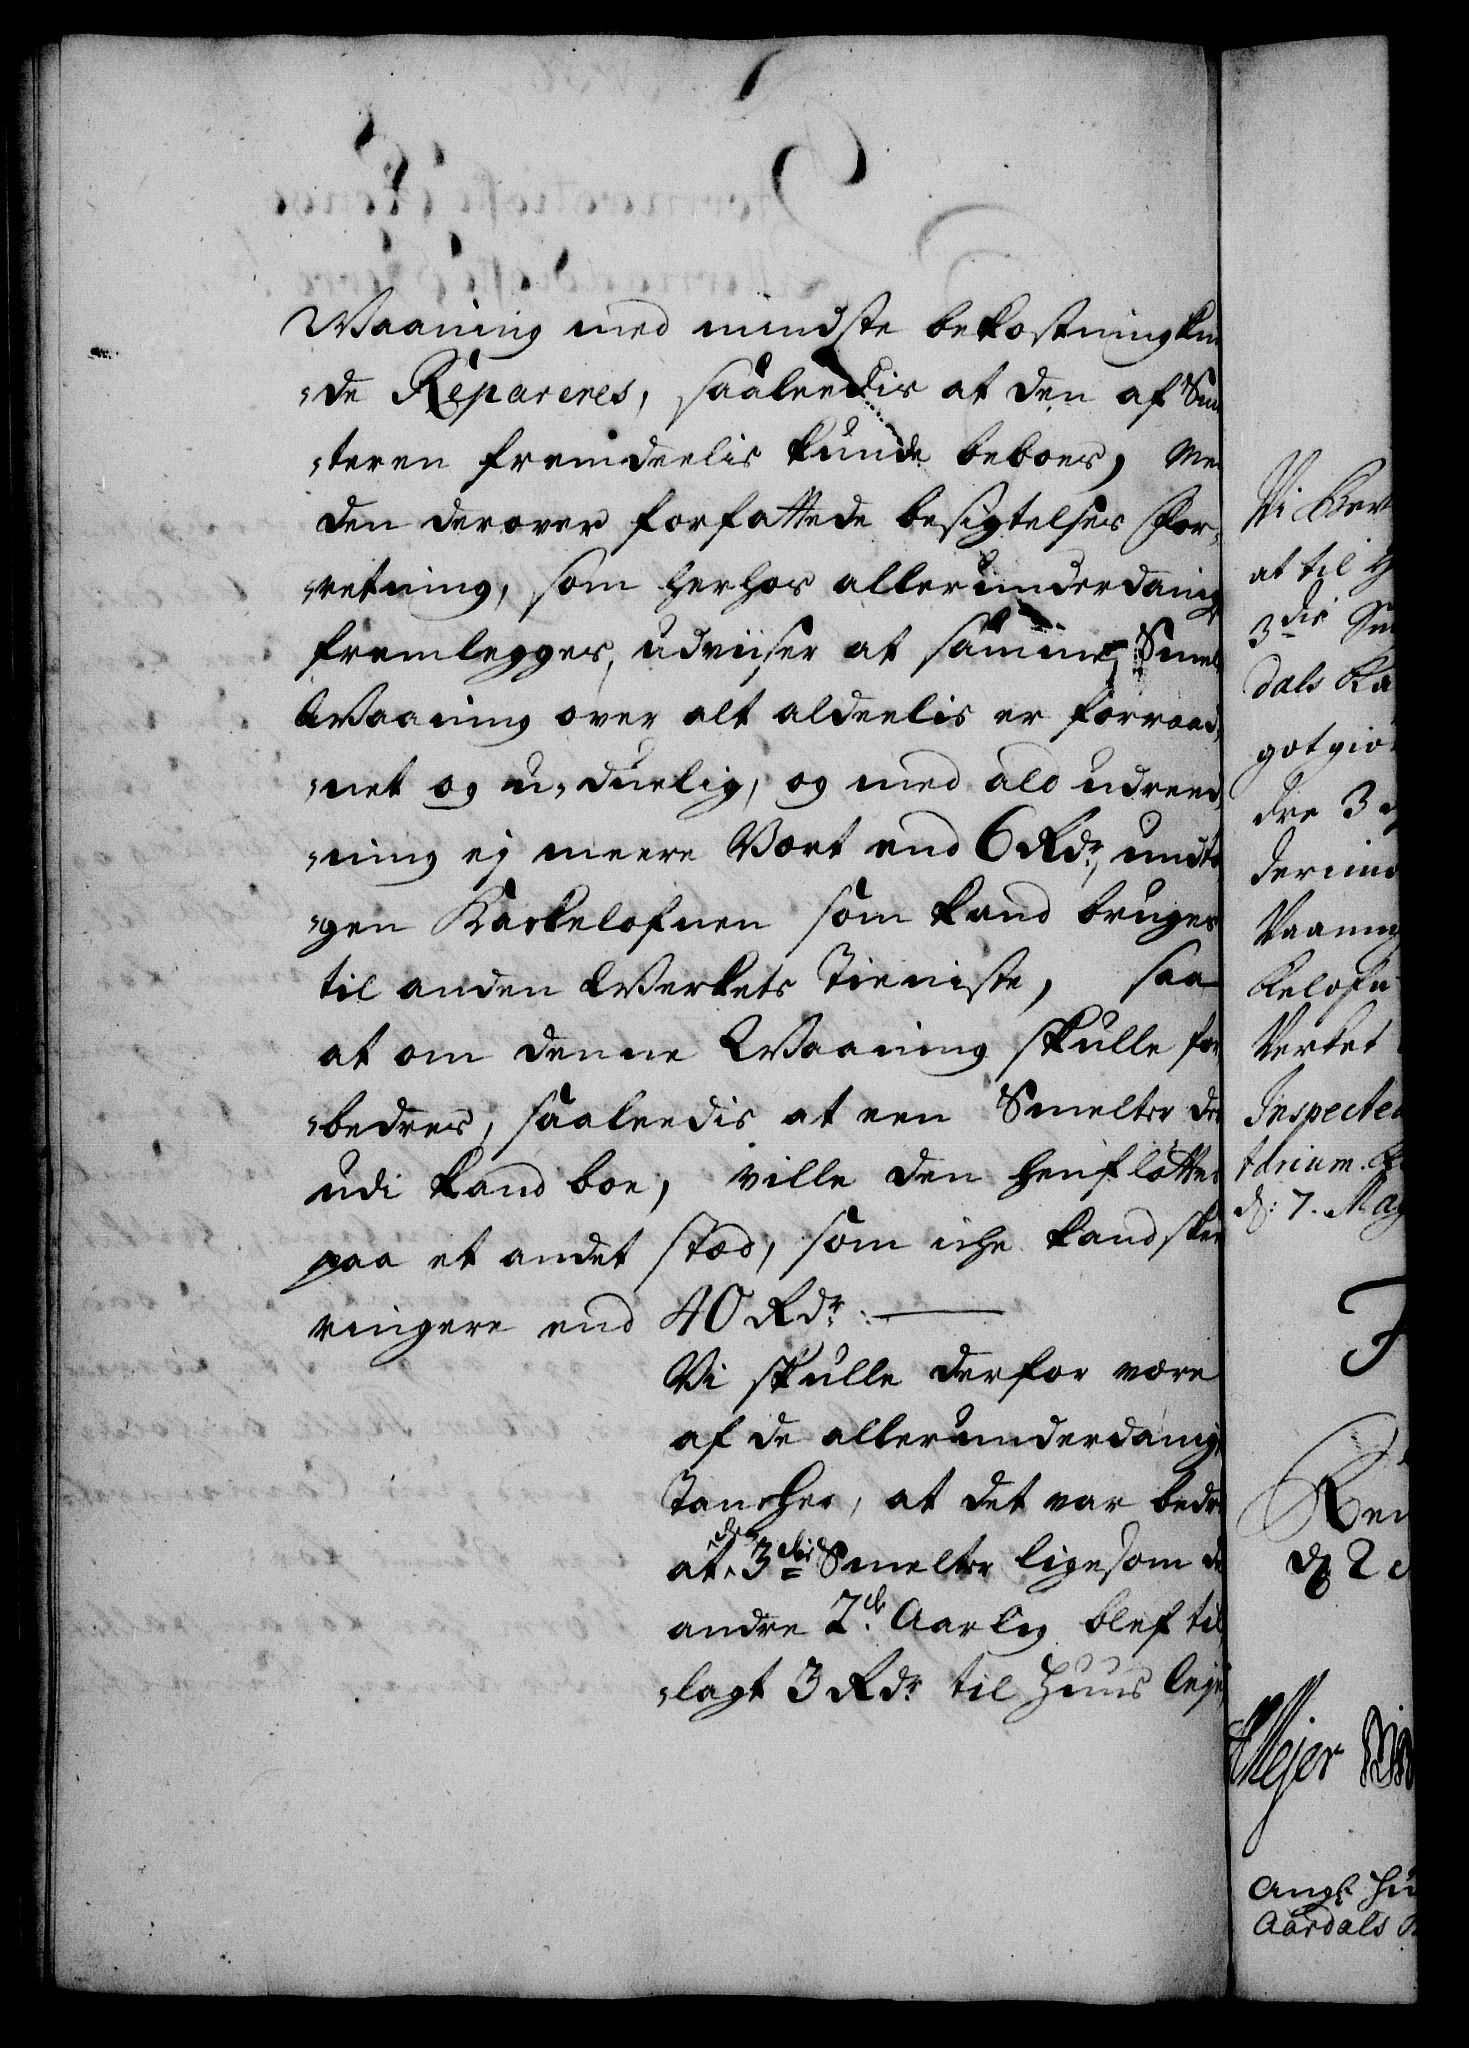 Waaning med mindste bekostning kun
-de Repareres, saaleedis at den af Smel
-teren fremdeelis kunde beboes, Men
den derover forfattede besigtelses for-
-retning, som herhos allerunderdanig
fremlegges, udviiser at samme Smel
Waaning over alt aldeelis er forraad,
-net og u-duelig, og med ald udreed,
-ning ej meere Vært end 6 Rdr, undta
-gen Kackelofnen som kand bruges
til anden Werkets Tieniste, saa
at om denne Waaning skulle for
-bedres, saaleedis at een Smelter der
udi kand boe, ville den henflöttes
paa et andet stæd, som iche kand skee
ringere end 40 Rdr.
Vi skulle derfor være
af de allerunderdanig
Tancher, at det var bedre
at den 3die Smelter ligesom de
andre 2de Aarlig blef til
-lagt 3 Rdr til Huus leje
Vi
at til
3die
dals
gotgiör
dre 3
derimo
Vaaning
kelofn
Verket
Inspecteu
d: 7. May
Ren
d 2
Mejer
Ang
Aardals